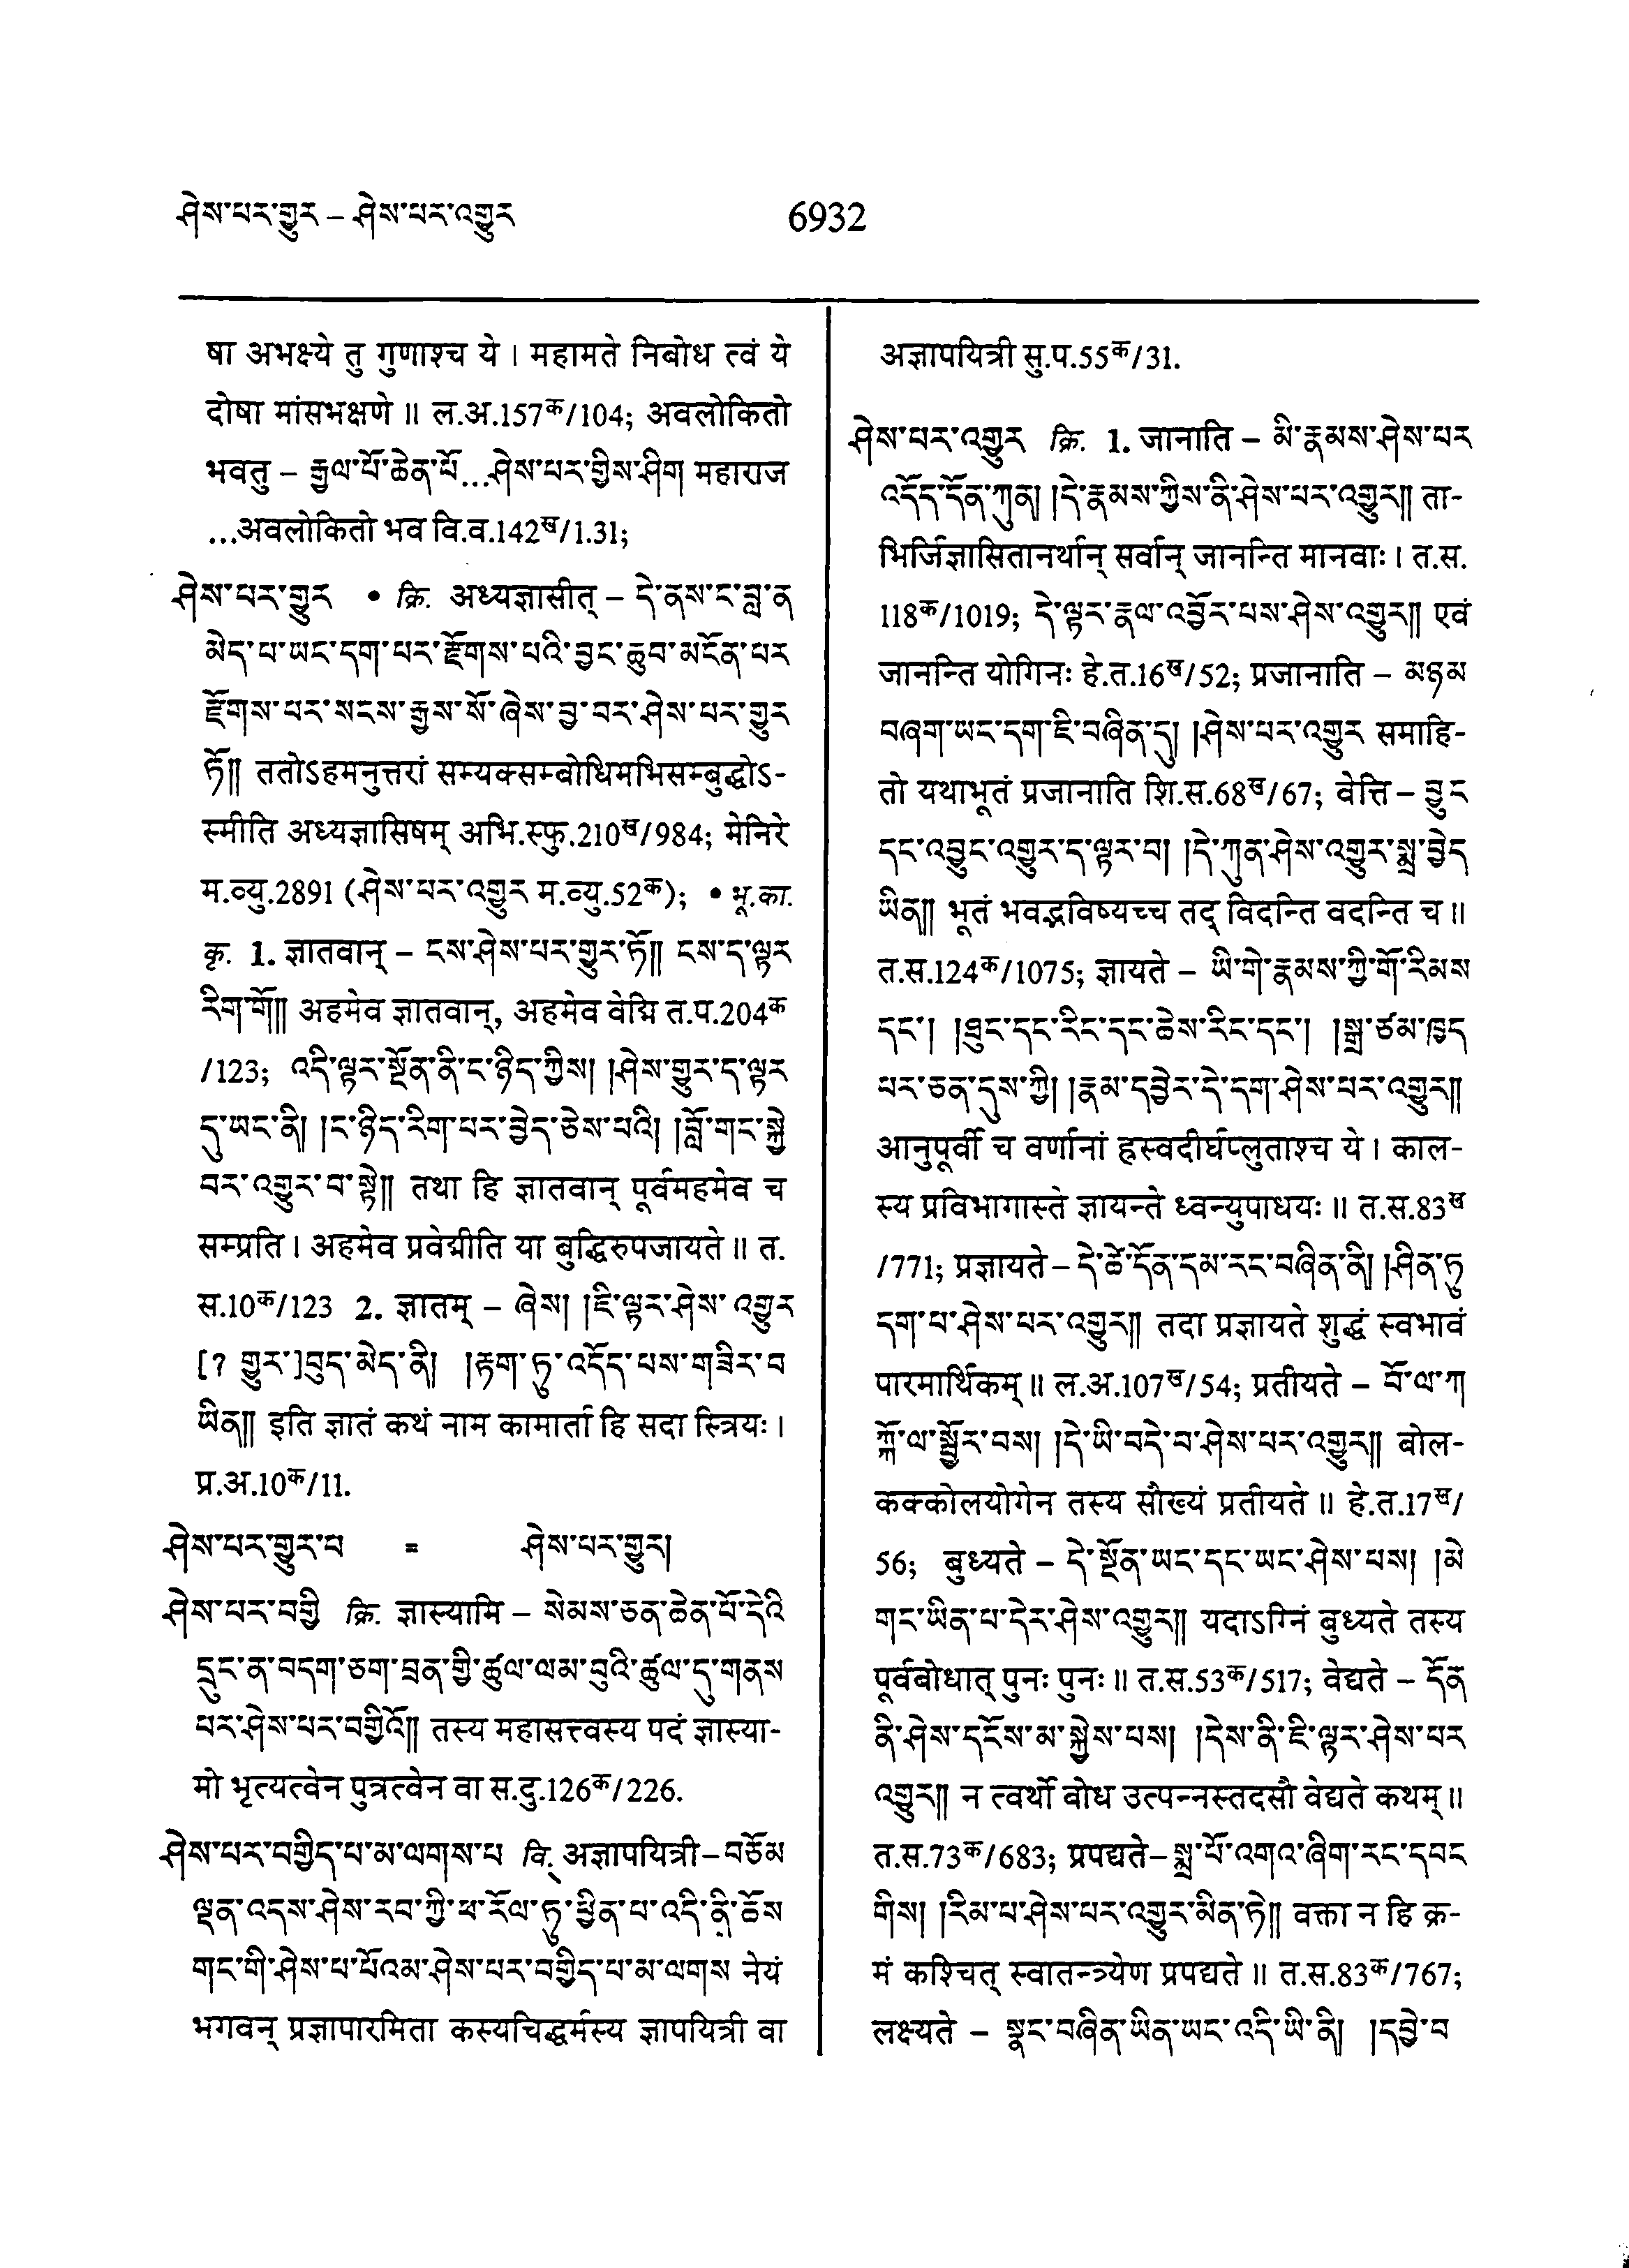 ཤེས་པར་གྱུར – ཤེས་པར་འགྱུར
6932
षा अभक्ष्ये तु गुणाश्च ये । महामते निबोध त्वं ये
दोषा मांसभक्षणे ॥ ल.अ.157क/104; अवलोकितो
भवतु – རྒྱལ་པོ་ཆེན་པོ...ཤེས་པར་གྱིས་ཤིག महाराज
...अवलोकितो भव वि.व.142ख/1.31;
ཤེས་པར་གྱུར • क्रि. अध्यज्ञासीत् – དེ་ནས་ང་བླ་ན
མེད་པ་ཡང་དག་པར་རྫོགས་པའི་བྱང་ཆུབ་མངོན་པར
རྫོགས་པར་སངས་རྒྱས་སོ་ཞེས་བྱ་བར་ཤེས་པར་གྱུར
ཏོ།། ततोऽहमनुत्तरां सम्यक्सम्बोधिमभिसम्बुद्धोऽ-
स्मीति अध्यज्ञासिषम् अभि.स्फु.210ख/984; मेनिरे
म.व्यु.2891 (ཤེས་པར་འགྱུར म.व्यु.52क); • भू.का.
कृ. 1. ज्ञातवान् – ངས་ཤེས་པར་གྱུར་ཏོ།། ངས་ད་ལྟར
རིག་གོ།། अहमेव ज्ञातवान्, अहमेव वेद्मि त.प.204क
/123; འདི་ལྟར་སྔོན་ནི་ང་ཉིད་ཀྱིས། །ཤེས་གྱུར་ད་ལྟར
དུ་ཡང་ནི། །ང་ཉིད་རིག་པར་བྱེད་ཅེས་པའི། །བློ་གང་སྐྱེ
བར་འགྱུར་བ་སྟེ།། तथा हि ज्ञातवान् पूर्वमहमेव च
सम्प्रति । अहमेव प्रवेद्मीति या बुद्धिरुपजायते ॥ त.
स.10क/123 2. ज्ञातम् – ཞེས། །ཇི་ལྟར་ཤེས་ འགྱུར
[? གྱུར་]བུད་མེད་ནི། །རྟག་ཏུ་འདོད་པས་གཟིར་བ
ཡིན།། इति ज्ञातं कथं नाम कामार्ता हि सदा स्त्रियः ।
प्र.अ.10क/11.
ཤེས་པར་གྱུར་པ = ཤེས་པར་གྱུར།
ཤེས་པར་བགྱི क्रि. ज्ञास्यामि – སེམས་ཅན་ཆེན་པོ་དེའི
དྲུང་ན་བདག་ཅག་བྲན་གྱི་ཚུལ་ལམ་བུའི་ཚུལ་དུ་གནས
པར་ཤེས་པར་བགྱིའོ།། तस्य महासत्त्वस्य पदं ज्ञास्या-
मो भृत्यत्वेन पुत्रत्वेन वा स.दु.126क/226.
ཤེས་པར་བགྱིད་པ་མ་ལགས་པ वि. अज्ञापयित्री–བཅོམ
ལྡན་འདས་ཤེས་རབ་ཀྱི་ཕ་རོལ་ཏུ་ཕྱིན་པ་འདི་ནི་ཆོས
གང་གི་ཤེས་པ་པོའམ་ཤེས་པར་བགྱིད་པ་མ་ལགས नेयं
भगवन् प्रज्ञापारमिता कस्यचिद्धर्मस्य ज्ञापयित्री वा
अज्ञापयित्री सु.प.55क/31.
ཤེས་པར་འགྱུར क्रि. 1. जानाति – མི་རྣམས་ཤེས་པར
འདོད་དོན་ཀུན། །དེ་རྣམས་ཀྱིས་ནི་ཤེས་པར་འགྱུར།། ता-
भिर्जिज्ञासितानर्थान् सर्वान् जानन्ति मानवाः । त.स.
118क/1019; དེ་ལྟར་རྣལ་འབྱོར་པས་ཤེས་འགྱུར།། एवं
जानन्ति योगिनः हे.त.16ख/52; प्रजानाति – མཉམ
བཞག་ཡང་དག་ཇི་བཞིན་དུ། །ཤེས་པར་འགྱུར समाहि-
तो यथाभूतं प्रजानाति शि.स.68ख/67; वेत्ति – བྱུར
དང་འབྱུང་འགྱུར་ད་ལྟར་བ། །དེ་ཀུན་ཤེས་འགྱུར་སྨྲ་བྱེད
ཡིན།། भूतं भवद्भविष्यच्च तद् विदन्ति वदन्ति च ॥
त.स.124क/1075; ज्ञायते – ཡི་གེ་རྣམས་ཀྱི་གོ་རིམས
དང་། །ཐུང་དང་རིང་དང་ཆེས་རིང་དང་། །སྒྲ་ཙམ་ཁྱད
པར་ཅན་དུས་ཀྱི། །རྣམ་དབྱེར་དེ་དག་ཤེས་པར་འགྱུར།།
आनुपूर्वी च वर्णानां ह्रस्वदीर्घप्लुताश्च ये । काल-
स्य प्रविभागास्ते ज्ञायन्ते ध्वन्युपाधयः ॥ त.स.83ख
/771; प्रज्ञायते – དེ་ཚེ་དོན་དམ་རང་བཞིན་ནི། །ཤིན་ཏུ
དག་པ་ཤེས་པར་འགྱུར།། तदा प्रज्ञायते शुद्धं स्वभावं
पारमार्थिकम् ॥ ल.अ.107ख/54; प्रतीयते – བོ་ལ་ཀ
ཀྐོ་ལ་སྦྱོར་བས། །དེ་ཡི་བདེ་བ་ཤེས་པར་འགྱུར།། बोल-
कक्कोलयोगेन तस्य सौख्यं प्रतीयते ॥ हे.त.17ख/
56; बुध्यते – དེ་སྔོན་ཡང་དང་ཡང་ཤེས་པས། །མེ
གང་ཡིན་པ་དེར་ཤེས་འགྱུར།། यदाऽग्निं बुध्यते तस्य
पूर्वबोधात् पुनः पुनः ॥ त.स.53क/517; वेद्यते – དོན
ནི་ཤེས་དངོས་མ་སྐྱེས་པས། །དེས་ནི་ཇི་ལྟར་ཤེས་པར
འགྱུར།། न त्वर्थो बोध उत्पन्नस्तदसौ वेद्यते कथम् ॥
त.स.73क/683; प्रपद्यते–སྨྲ་པོ་འགའ་ཞིག་རང་དབང
གིས། །རིམ་པ་ཤེས་པར་འགྱུར་མིན་ཏེ།། वक्ता न हि क्र-
मं कश्चित् स्वातन्त्र्येण प्रपद्यते ॥ त.स.83क/767;
लक्ष्यते – སྣང་བཞིན་ཡིན་ཡང་འདི་ཡི་ནི། །དབྱེ་བ